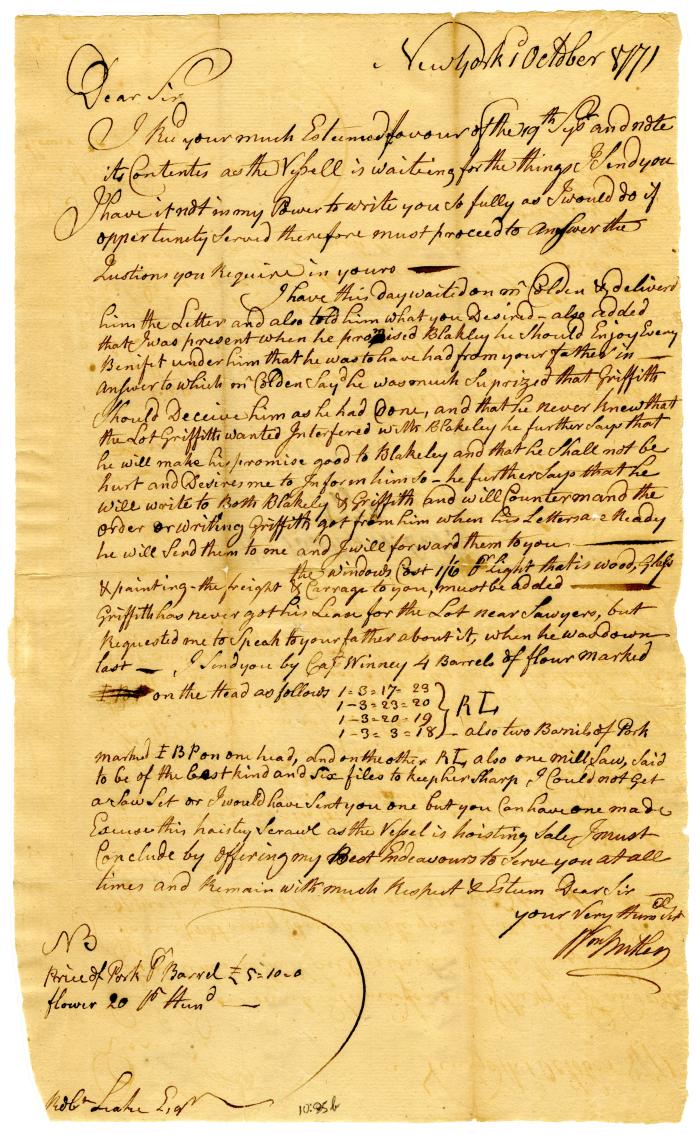 New York 1 October 1771
Dear Sir
I Recd your much Esteemed favour of the 19th Sept and note
its Contentes as the Vessell is waiteing for the things I Send you
I have it not in my Power to write you so fully as I would do if
oppertunity Served therefore must proceed to answer the
Qustions you Require in yours
I have this Day waited on mr Colden & deliverd
him the Letter and also told him what you Desired - also added
that I was present when he promised Blakley he Should Enjoy Every
Benifit under him that he was to have had from your father in
answer to which mr Colden Sayd he was much Suprized that Griffith
Should Deceive him as he had Done, and that he never knew that
the Lot Griffith wanted Interfered with Blakeley he further Says that
he will make his promise good to Blakeley and that he Shall not be
hurt and Desires me to Inform him so - he further Says that he
will write to Both Blakely & Griffith and will Countermand the
order or writing Griffith got from him when his Letters are Ready
he will Send them to me and I will forward them to you
the windows Cost 1/6 Pr light that is wood, Glass
& painting - the freight & Carrage to you, must be added
Griffith has never got his Lease for the Lot near Sawyers, but
Requested me to Speak to your father about it, when he was down
last - I Send you by Capt Winney 4 Barrels of flour marked
on the Head as follows 1-3=17-23
1-3=23=20
1-3=20-19
1-3=3=18 } RL
- also two Barrils of Pork
marked I B P on one head, and on the other RL also one mill Saw, Said
to be of the best kind and Six files to keep her Sharp, I Could not Get
a Saw Set or I would have Sent you one but you Can have one made
Excuse this haistey Scrawl as the Vessel is hoisting Sale, I must
Conclude by offering my Best Endeavours to Serve you at all
times and Remain with much Respect & Estum Dear Sir
your Very Humbl Sert
Wm Butler
NB
Price of Pork Pr Barrel £5=10-0
flower 20 Pr Hund
Robt Leake Esqr
10:85b